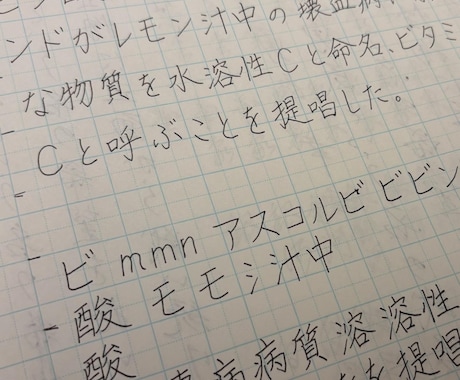 ンドがレモン汁中の壊血病
な物質を水溶性Cと命名、ビタミ
Cと呼ぶことを提唱した。
ビ mmn アスコルビビビン
酸 モモシ汁中
酸 病病質溶溶性
を提唱